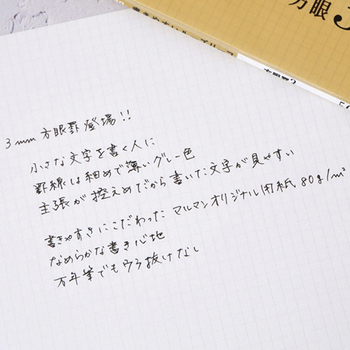 方眼 3
3mm 方眼罫 登場!!
小さな文字を書く人に
罫線は細めで薄いグレー色
主張が控えめだから書いた文字が見やすい
書きやすさにこだわった マルマンオリジナル用紙 80g/m²
なめらかな書き心地
万年筆でもウラ抜けなし